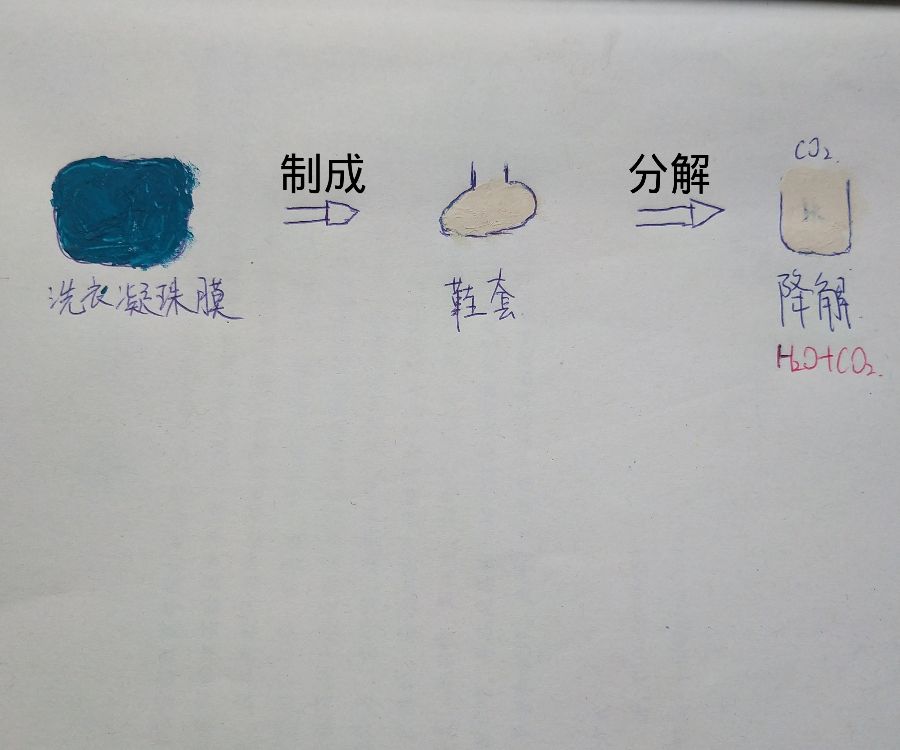 制成
分解
CO₂.
洗衣凝珠膜
鞋套
降解.
H₂O+CO₂.